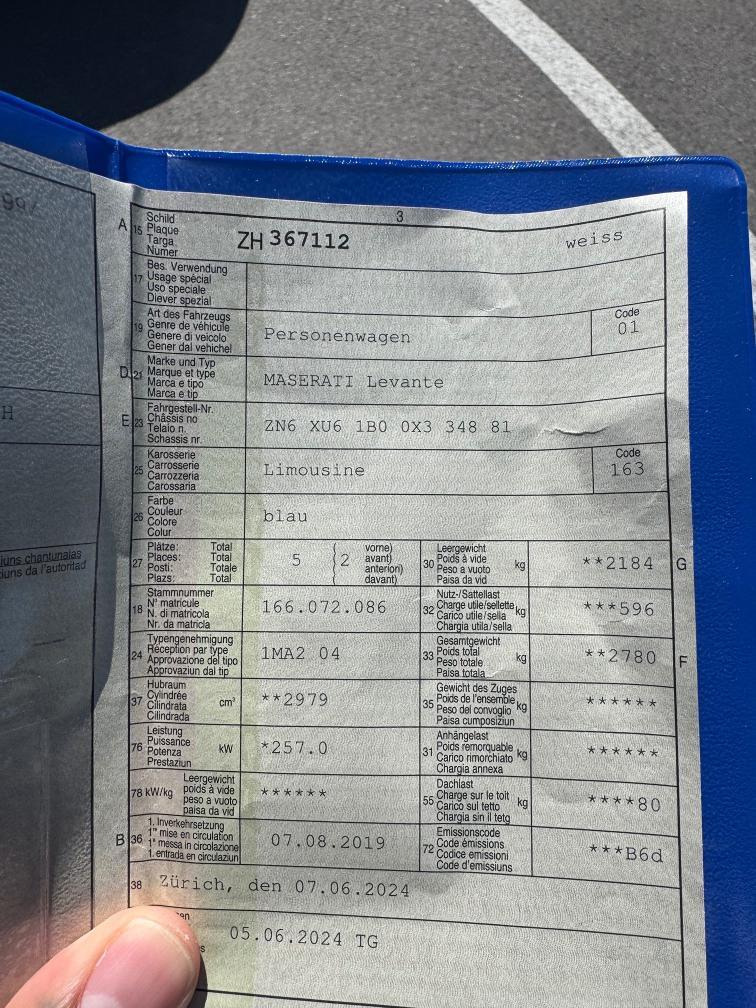 997
H
iuns chantunaias
tiuns da l'autoritad
3
A 15 Schild
Plaque
Targa
Numer
ZH 367112 weiss
17 Bes. Verwendung
Usage spécial
Uso speciale
Diever spezial
19 Art des Fahrzeugs
Genre de véhicule
Genere di veicolo
Gener dal vehichel
Personenwagen
Code
01
D 21 Marke und Typ
Marque et type
Marca e tipo
Marca e tip
MASERATI Levante
E 23 Fahrgestell-Nr.
Châssis no
Telaio n.
Schassis nr.
ZN6 XU6 1B0 0X3 348 81
25 Karosserie
Carrosserie
Carrozzeria
Carossaria
Limousine
Code
163
26 Farbe
Couleur
Colore
Colur
blau
27 Plätze: Total
Places: Total
Posti: Totale
Plazs: Total
5 { 2 vorne)
avant)
anteriori)
davant)
30 Leergewicht
Poids à vide
Peso a vuoto
Paisa da vid
kg
**2184 G
18 Stammnummer
N° matricule
N. di matricola
Nr. da matricla
166.072.086
32 Nutz-/Sattellast
Charge utile/sellette
Carico utile/sella
Chargia utila/sella
kg
***596
24 Typengenehmigung
Réception par type
Approvazione del tipo
Approvaziun dal tip
1MA2 04
33 Gesamtgewicht
Poids total
Peso totale
Paisa totala
kg
**2780 F
37 Hubraum
Cylindrée
Cilindrata
Cilindrada
cm³
**2979
35 Gewicht des Zuges
Poids de l'ensemble
Peso del convoglio
Paisa cumposiziun
kg
******
76 Leistung
Puissance
Potenza
Prestaziun
kW
*257.0
31 Anhängelast
Poids remorquable
Carico rimorchiato
Chargia annexa
kg
******
78 kW/kg Leergewicht
poids à vide
peso a vuoto
paisa da vid
******
55 Dachlast
Charge sur le toit
Carico sul tetto
Chargia sin il tetg
kg
****80
B 36 1. Inverkehrsetzung
1re mise en circulation
1a messa in circolazione
1. entrada en circulaziun
07.08.2019
72 Emissionscode
Code émissions
Codice emissioni
Code d'emissiuns
***B6d
38 Zürich, den 07.06.2024
05.06.2024 TG